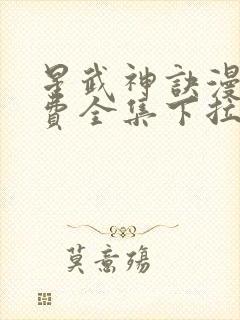 星武神訣漫
費全集下拉
莫意殤